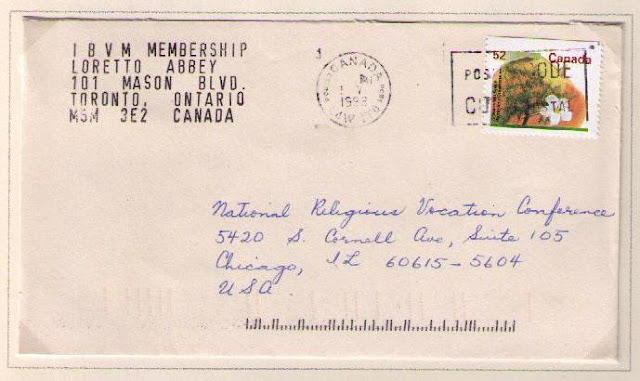 I B V M MEMBERSHIP
LORETTO ABBEY
101 MASON BLVD.
TORONTO, ONTARIO
M5M 3E2 CANADA
CANADA
52 Canada
National Religious Vocation Conference
5420 S. Cornell Ave, Suite 105
Chicago, IL 60615-5604
USA